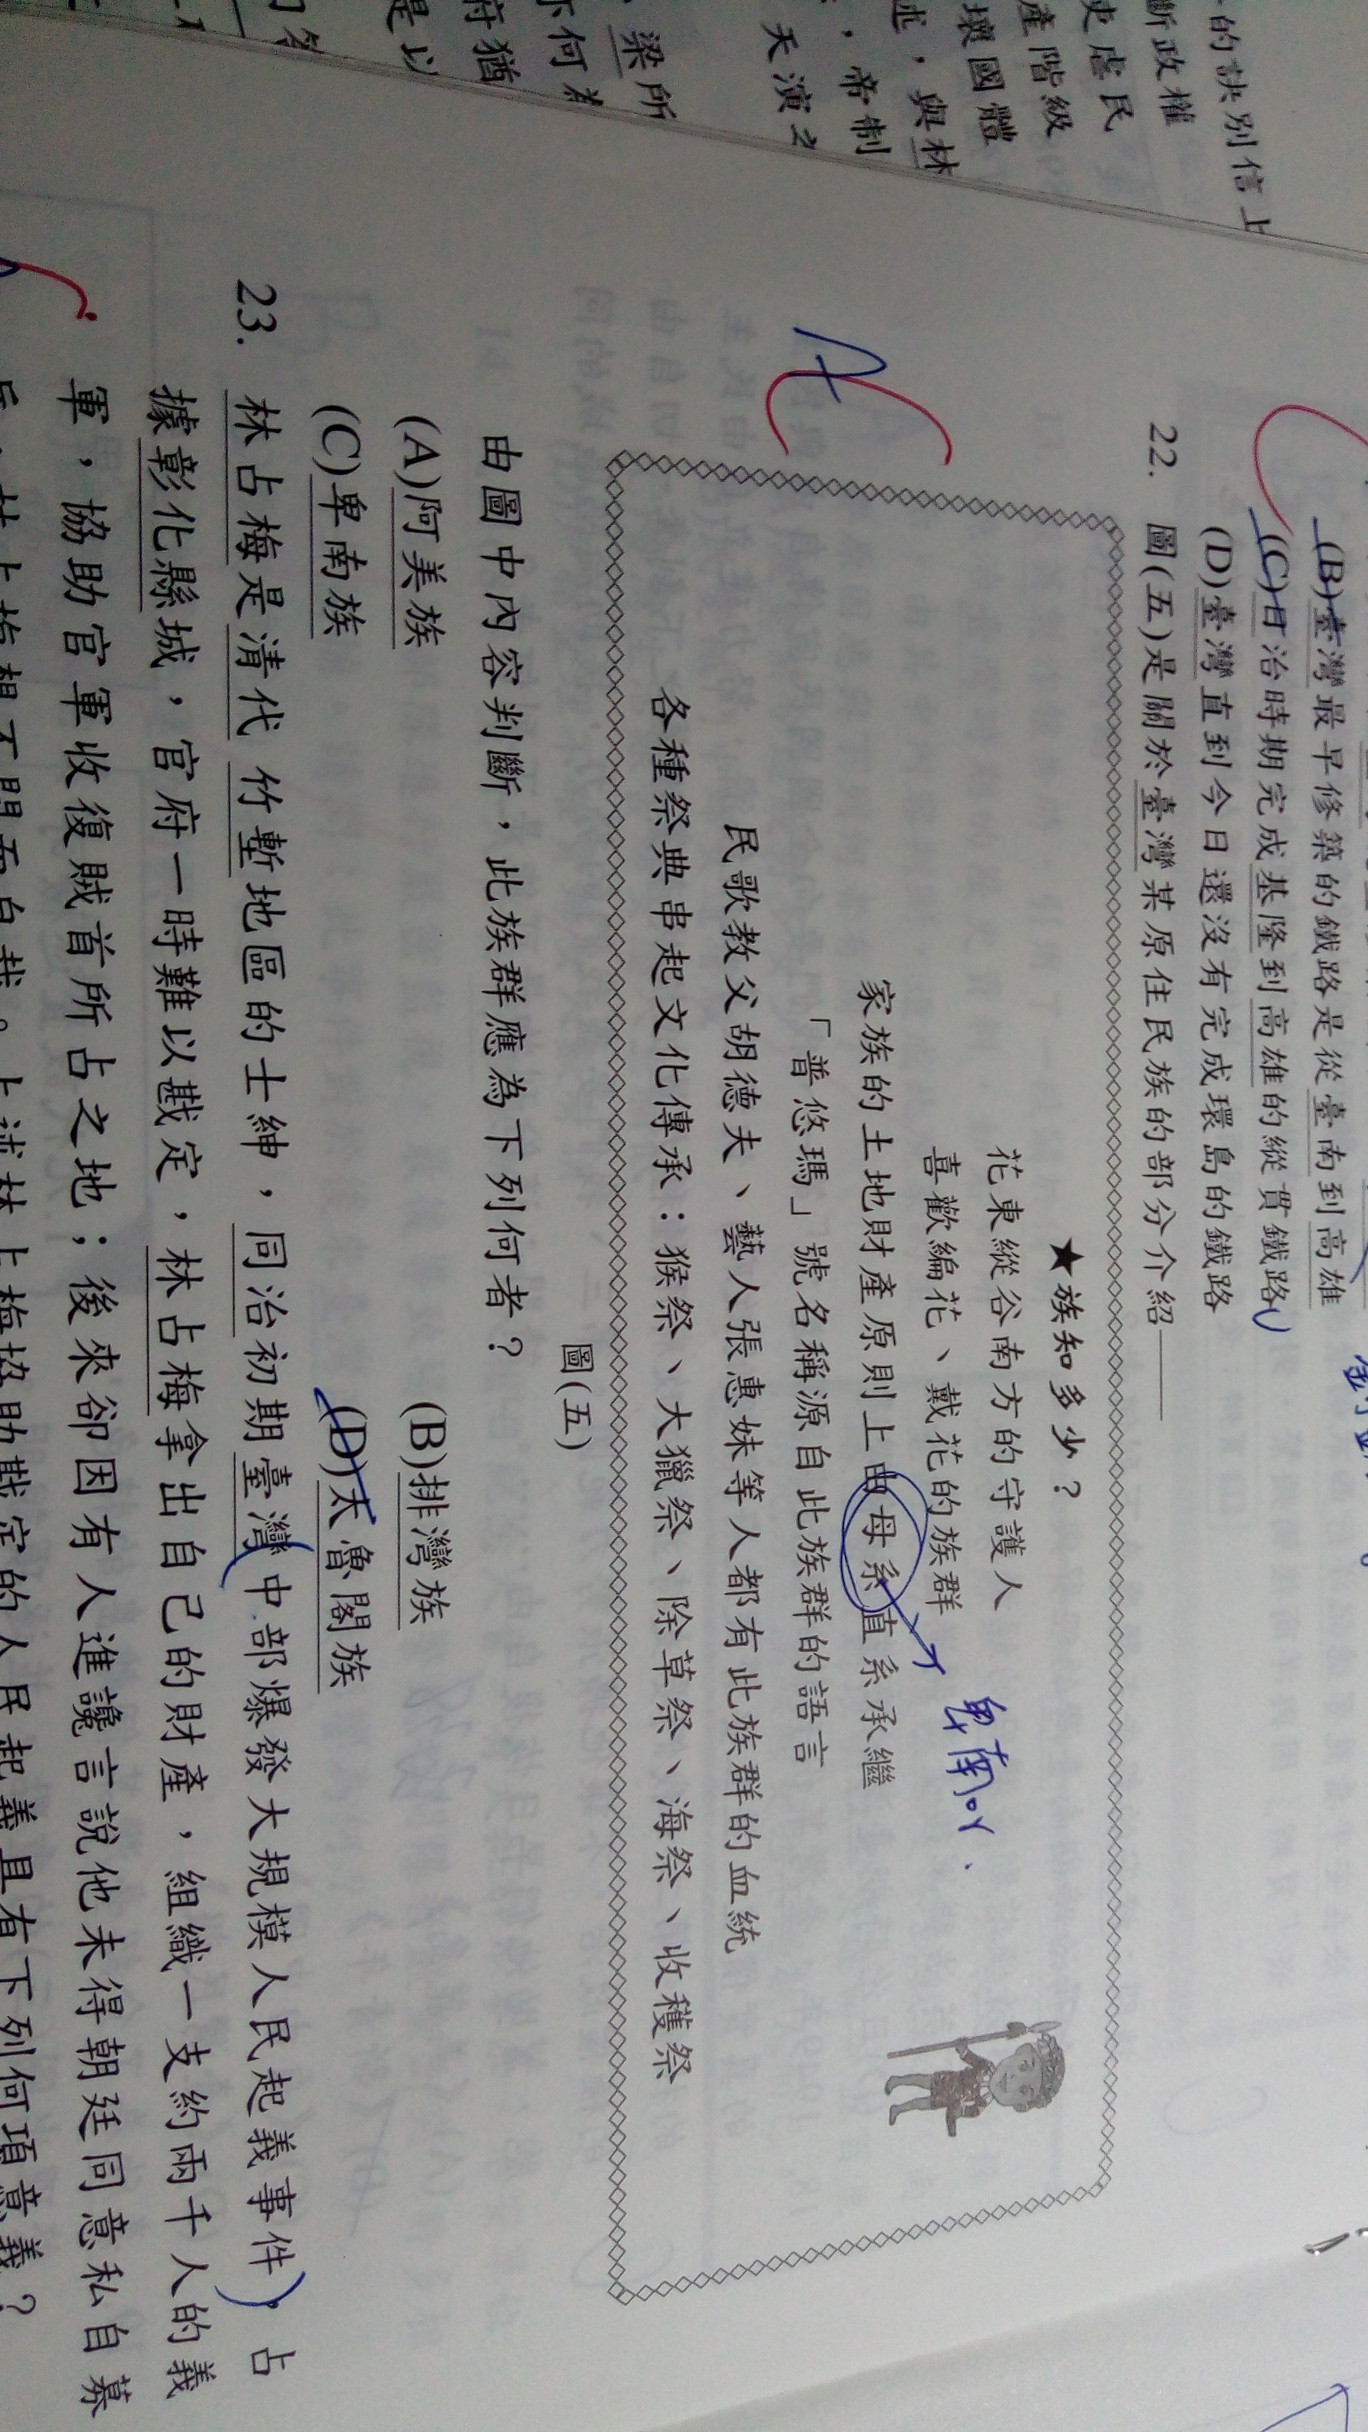 的訣別信上
斷政權
吏虐民
產階級
壞國體
述，與林
，帝制
天演之
梁所
(B)臺灣最早修築的鐵路是從臺南到高雄
(C)日治時期完成基隆到高雄的縱貫鐵路
(D)臺灣直到今日還沒有完成環島的鐵路
22. 圖(五)是關於臺灣某原住民族的部分介紹——
★族知多少？
花東縱谷南方的守護人
喜歡編花、戴花的族群
卑南
家族的土地財產原則上由母系直系承繼
「普悠瑪」號名稱源自此族群的語言
民歌教父胡德夫、藝人張惠妹等人都有此族群的血統
各種祭典串起文化傳承：猴祭、大獵祭、除草祭、海祭、收穫祭
圖(五)
A
由圖中內容判斷，此族群應為下列何者？
(A)阿美族 (B)排灣族
(C)卑南族 (D)太魯閣族
23. 林占梅是清代 竹塹地區的士紳，同治初期臺灣中部爆發大規模人民起義事件，占
據彰化縣城，官府一時難以戡定，林占梅拿出自己的財產，組織一支約兩千人的義
軍，協助官軍收復賊首所占之地；後來卻因有人進讒言說他未得朝廷同意私自募
兵，林占梅想不開而自裁。上述林占梅協助戡定的人民起義具有下列何項意義？